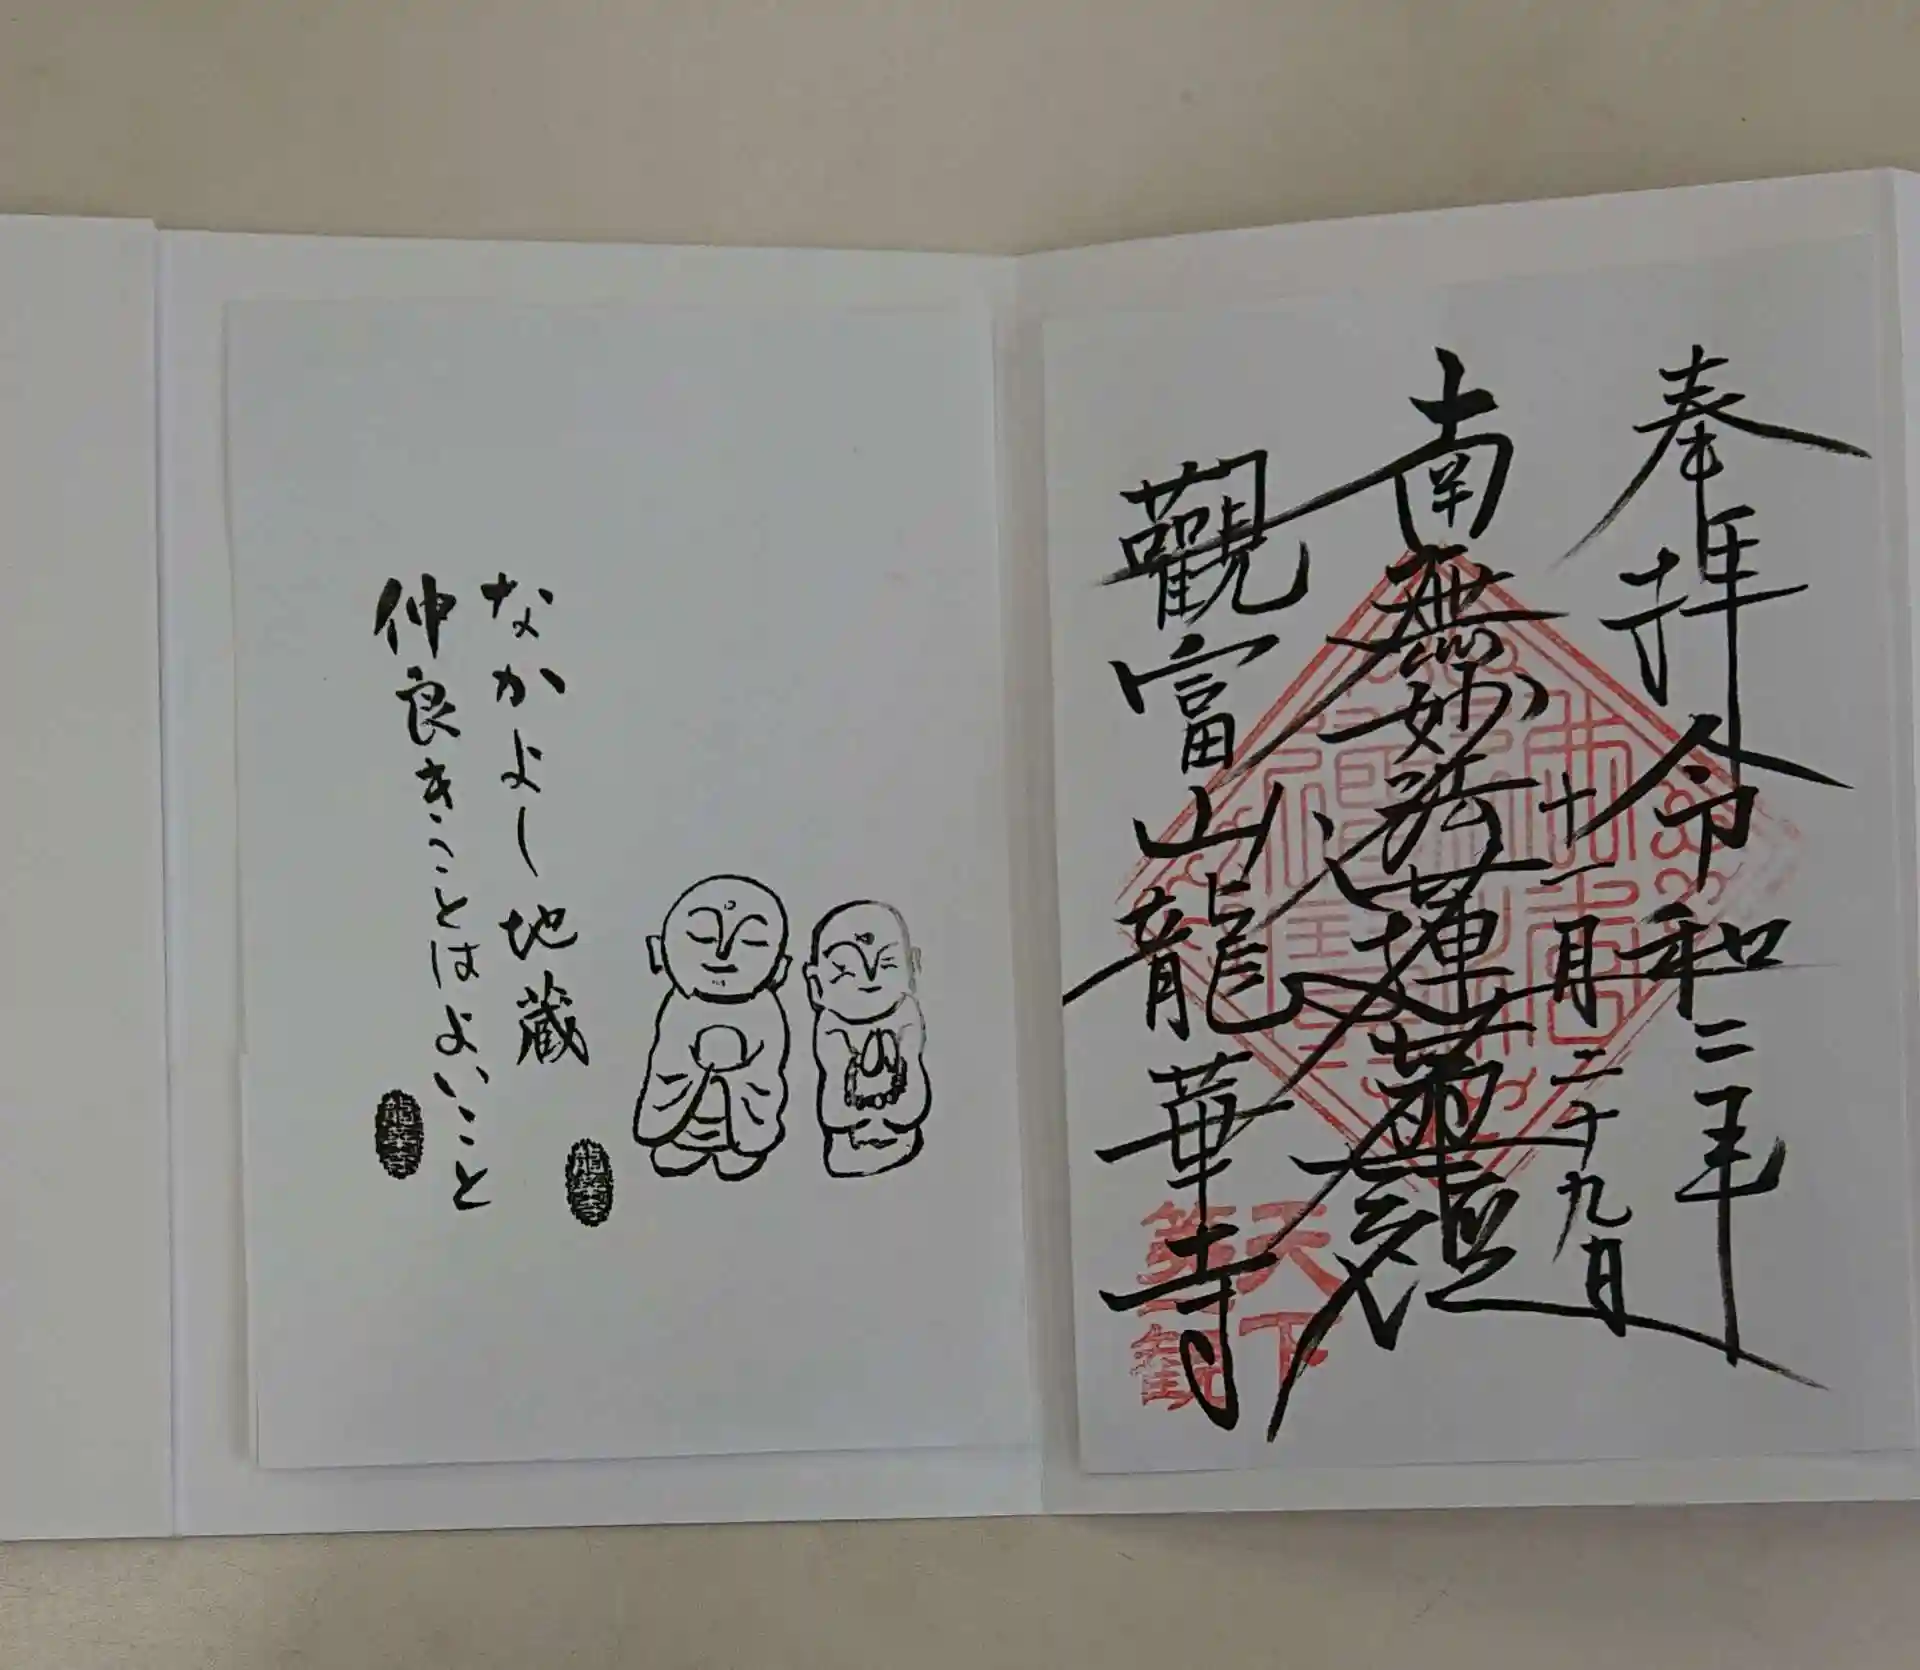 奉拝 令和二年
十一月二十九日
南無妙法蓮華経
觀富山龍華寺
天下
第一観
なかよし地蔵
仲良きことはよいこと
龍華寺
龍華寺